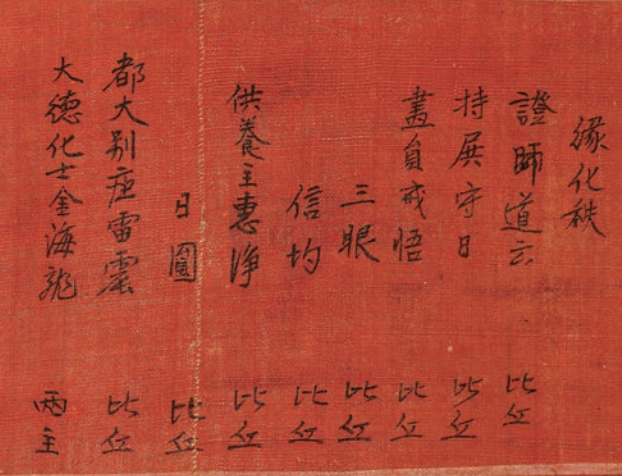 緣化秩
證師道云比丘
持展守日比丘
畫員戒悟比丘
三眼比丘
信均比丘
供養主惠淨比丘
日圓比丘
都大別座雷震比丘
大德化士金海龍兩主